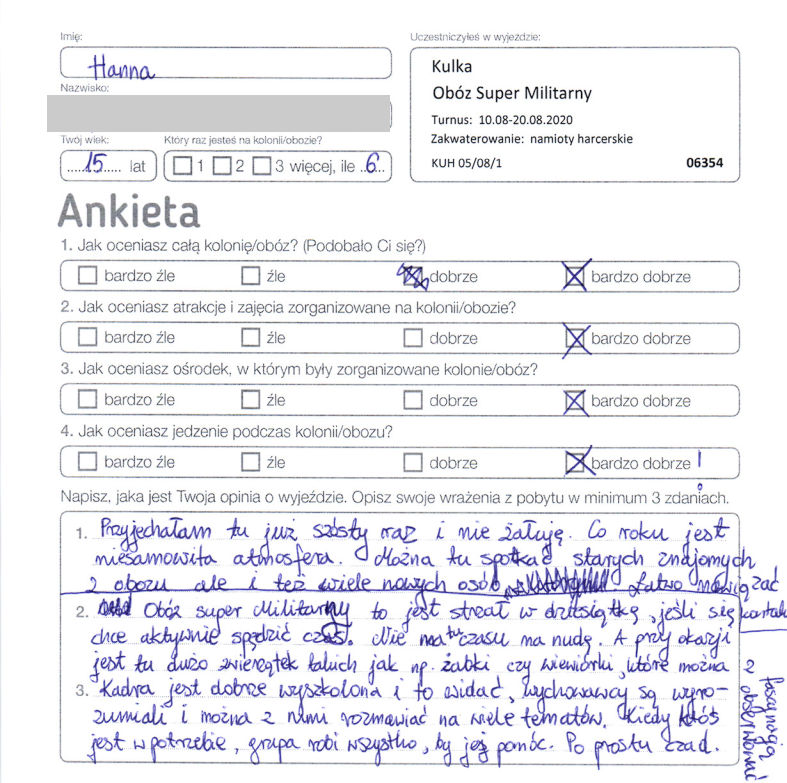 Imię:
Hanna
Nazwisko:
Twój wiek:
Który raz jesteś na kolonii/obozie?
.....15..... lat
1 2 3 więcej, ile ..6...
Uczestniczyłeś w wyjeździe:
Kulka
Obóz Super Militarny
Turnus: 10.08-20.08.2020
Zakwaterowanie: namioty harcerskie
KUH 05/08/1 06354
Ankieta
1. Jak oceniasz całą kolonię/obóz? (Podobało Ci się?)
bardzo źle źle dobrze bardzo dobrze
2. Jak oceniasz atrakcje i zajęcia zorganizowane na kolonii/obozie?
bardzo źle źle dobrze bardzo dobrze
3. Jak oceniasz ośrodek, w którym były zorganizowane kolonie/obóz?
bardzo źle źle dobrze bardzo dobrze
4. Jak oceniasz jedzenie podczas kolonii/obozu?
bardzo źle źle dobrze bardzo dobrze !
Napisz, jaka jest Twoja opinia o wyjeździe. Opisz swoje wrażenia z pobytu w minimum 3 zdaniach.
1. Przyjechałam tu już szósty raz i nie żałuję. Co roku jest
niesamowita atmosfera. Można tu spotkać starych znajomych
z obozu ale i też wiele nowych osób Łatwo nawiązać
kontakt
2. Obóz super Militarny to jest strzał w dziesiątkę, jeśli się
chce aktywnie spędzić czas. Nie ma tu czasu na nudę. A przy okazji
jest tu dużo zwierzątek takich jak np. żabki czy wiewiórki, które można
z fascynacją
obserwować
3. Kadra jest dobrze wyszkolona i to widać, wychowawcy są wyro-
zumiali i można z nimi rozmawiać na wiele tematów. Kiedy ktoś
jest w potrzebie, grupa robi wszystko, by jej pomóc. Po prostu czad.